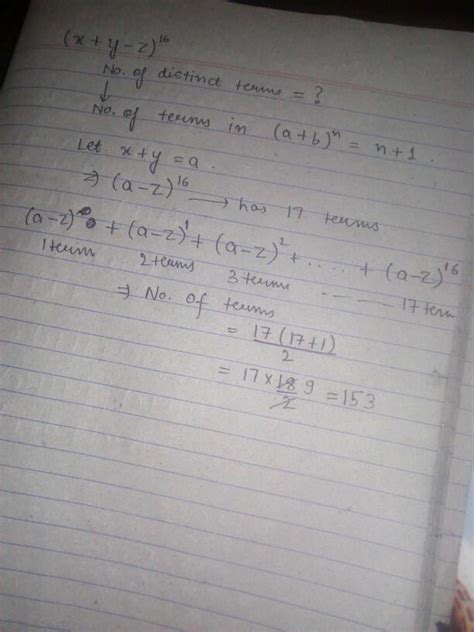 (x + y - z)^16
No. of distinct terms = ?
↓
No. of terms in (a+b)^n = n+1.
Let x+y = a.
⇒ (a-z)^16 ⟶ has 17 terms
(a-z)^0 + (a-z)^1 + (a-z)^2 + ..... + (a-z)^16
1 term 2 terms 3 terms - - - - 17 term
⇒ No. of terms
= 17(17+1)/2
= 17 × 18 9/2 = 153